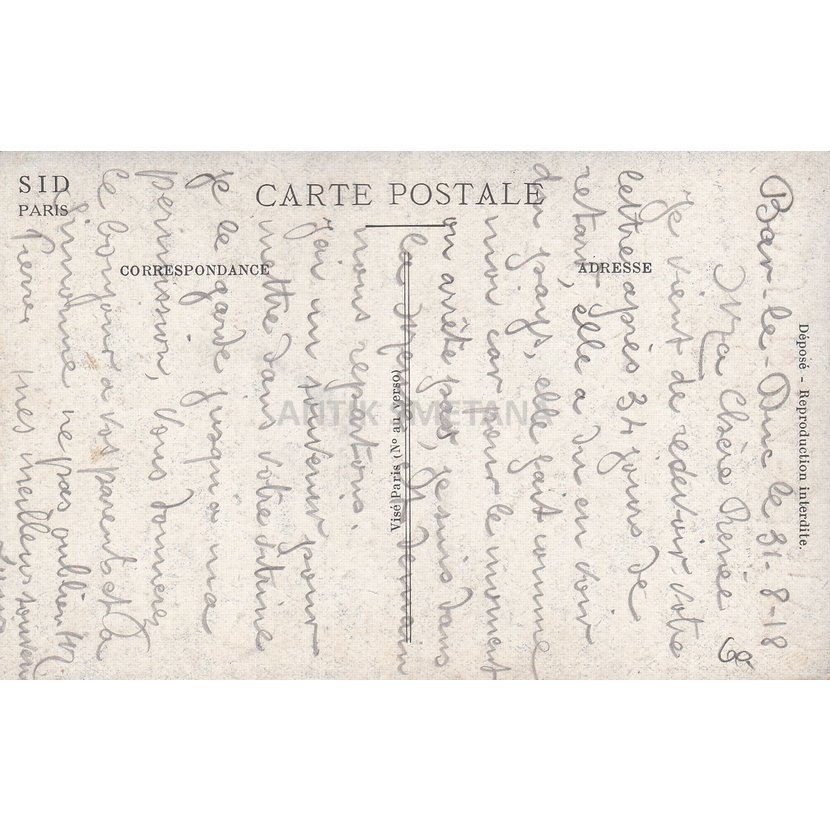 SID
PARIS
CARTE POSTALE
CORRESPONDANCE
ADRESSE
Visé Paris (N° au verso)
Déposé - Reproduction interdite.
ANTIK SMETANA
Bar-le-Duc le 31-8-18
Ma Chère Renée
Je vient de recevoir votre
lettre après 34 jours de
retard, elle a du en voir
du pays, elle fait comme
moi car pour le moment
on arrête pas, je suis dans
la
nous repartons.
J'ai un souvenir pour
mettre dans votre vitrine
je le garde jusqu'a ma
permission, vous donnerez
le bonjour a vos parents et a
Simonne ne pas oublier M
Pierre mes meilleurs souven